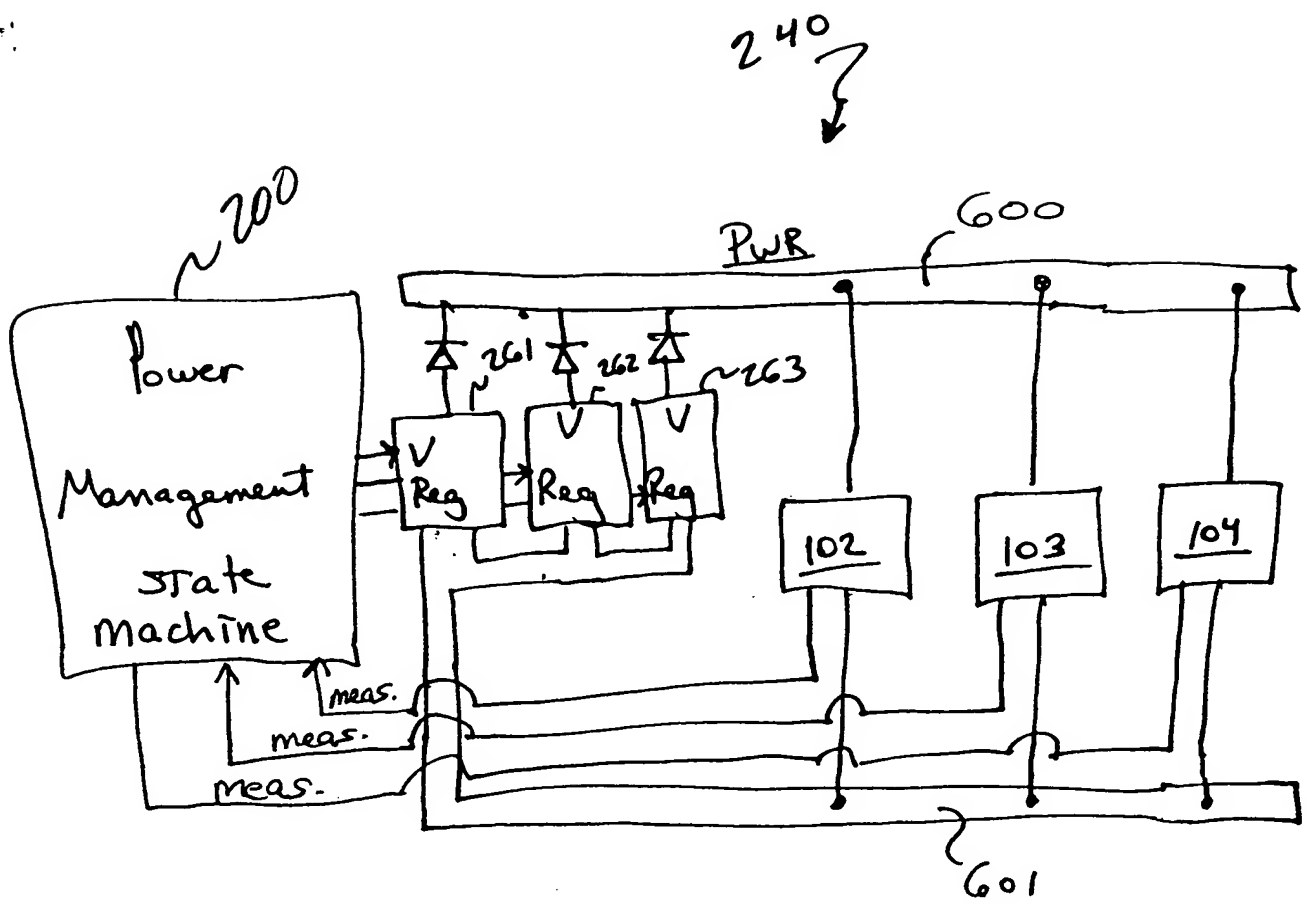 240
200
600
PWR
Power
Management
state
machine
261
262
263
V
Reg
V
Reg
V
Reg
102
103
104
meas.
meas.
meas.
601